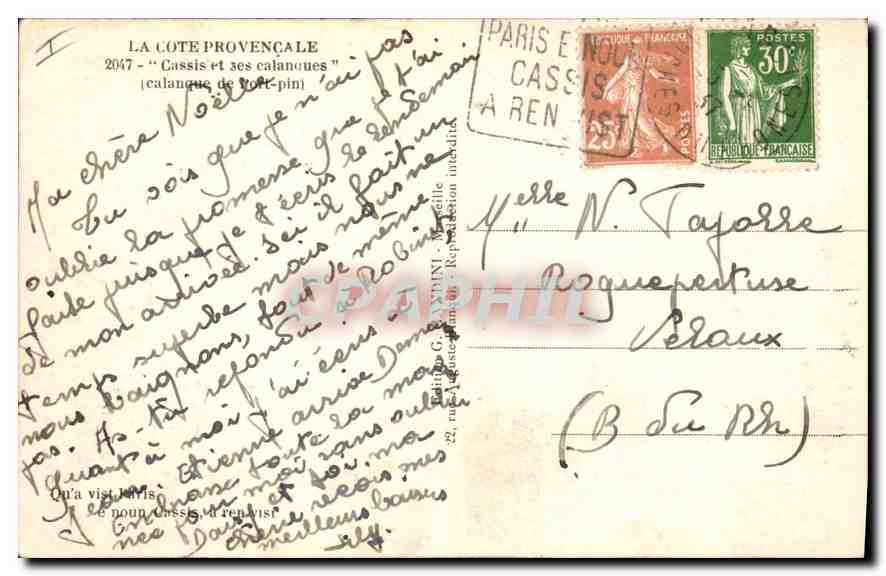 I
LA COTE PROVENÇALE
2047 - "Cassis et ses calanques"
(calanque de Port-pin)
Ma chère Noëlle
Tu vois que je n'ai pas
oublié la promesse que je t'ai
faite puisque je t'écris le lendemain
de mon arrivée. Ici il fait un
temps superbe mais nous ne
nous baignons, tous de même
pas. As-tu répondu à Robin
Quant à moi j'ai écris et
Jean Etienne arrive Demain
Embrasse toute la mai
née pour moi sans oublier
Dany et toi, ma
chère reçois mes
meilleurs baisers
Qu'a vist Paris,
e noun Cassis, a ren vist
Edition G. BANDINI - Marseille
22, rue Auguste-Blanqui - Reproduction interdite
PARIS E NOUN
CASSIS
A REN VIST
REPUBLIQUE FRANÇAISE
25c
POSTES
POSTES
30c
REPUBLIQUE FRANÇAISE
Melle N. Tajorre
Roquepertuse
Velaux
(B du Rh)
CPAPHIL